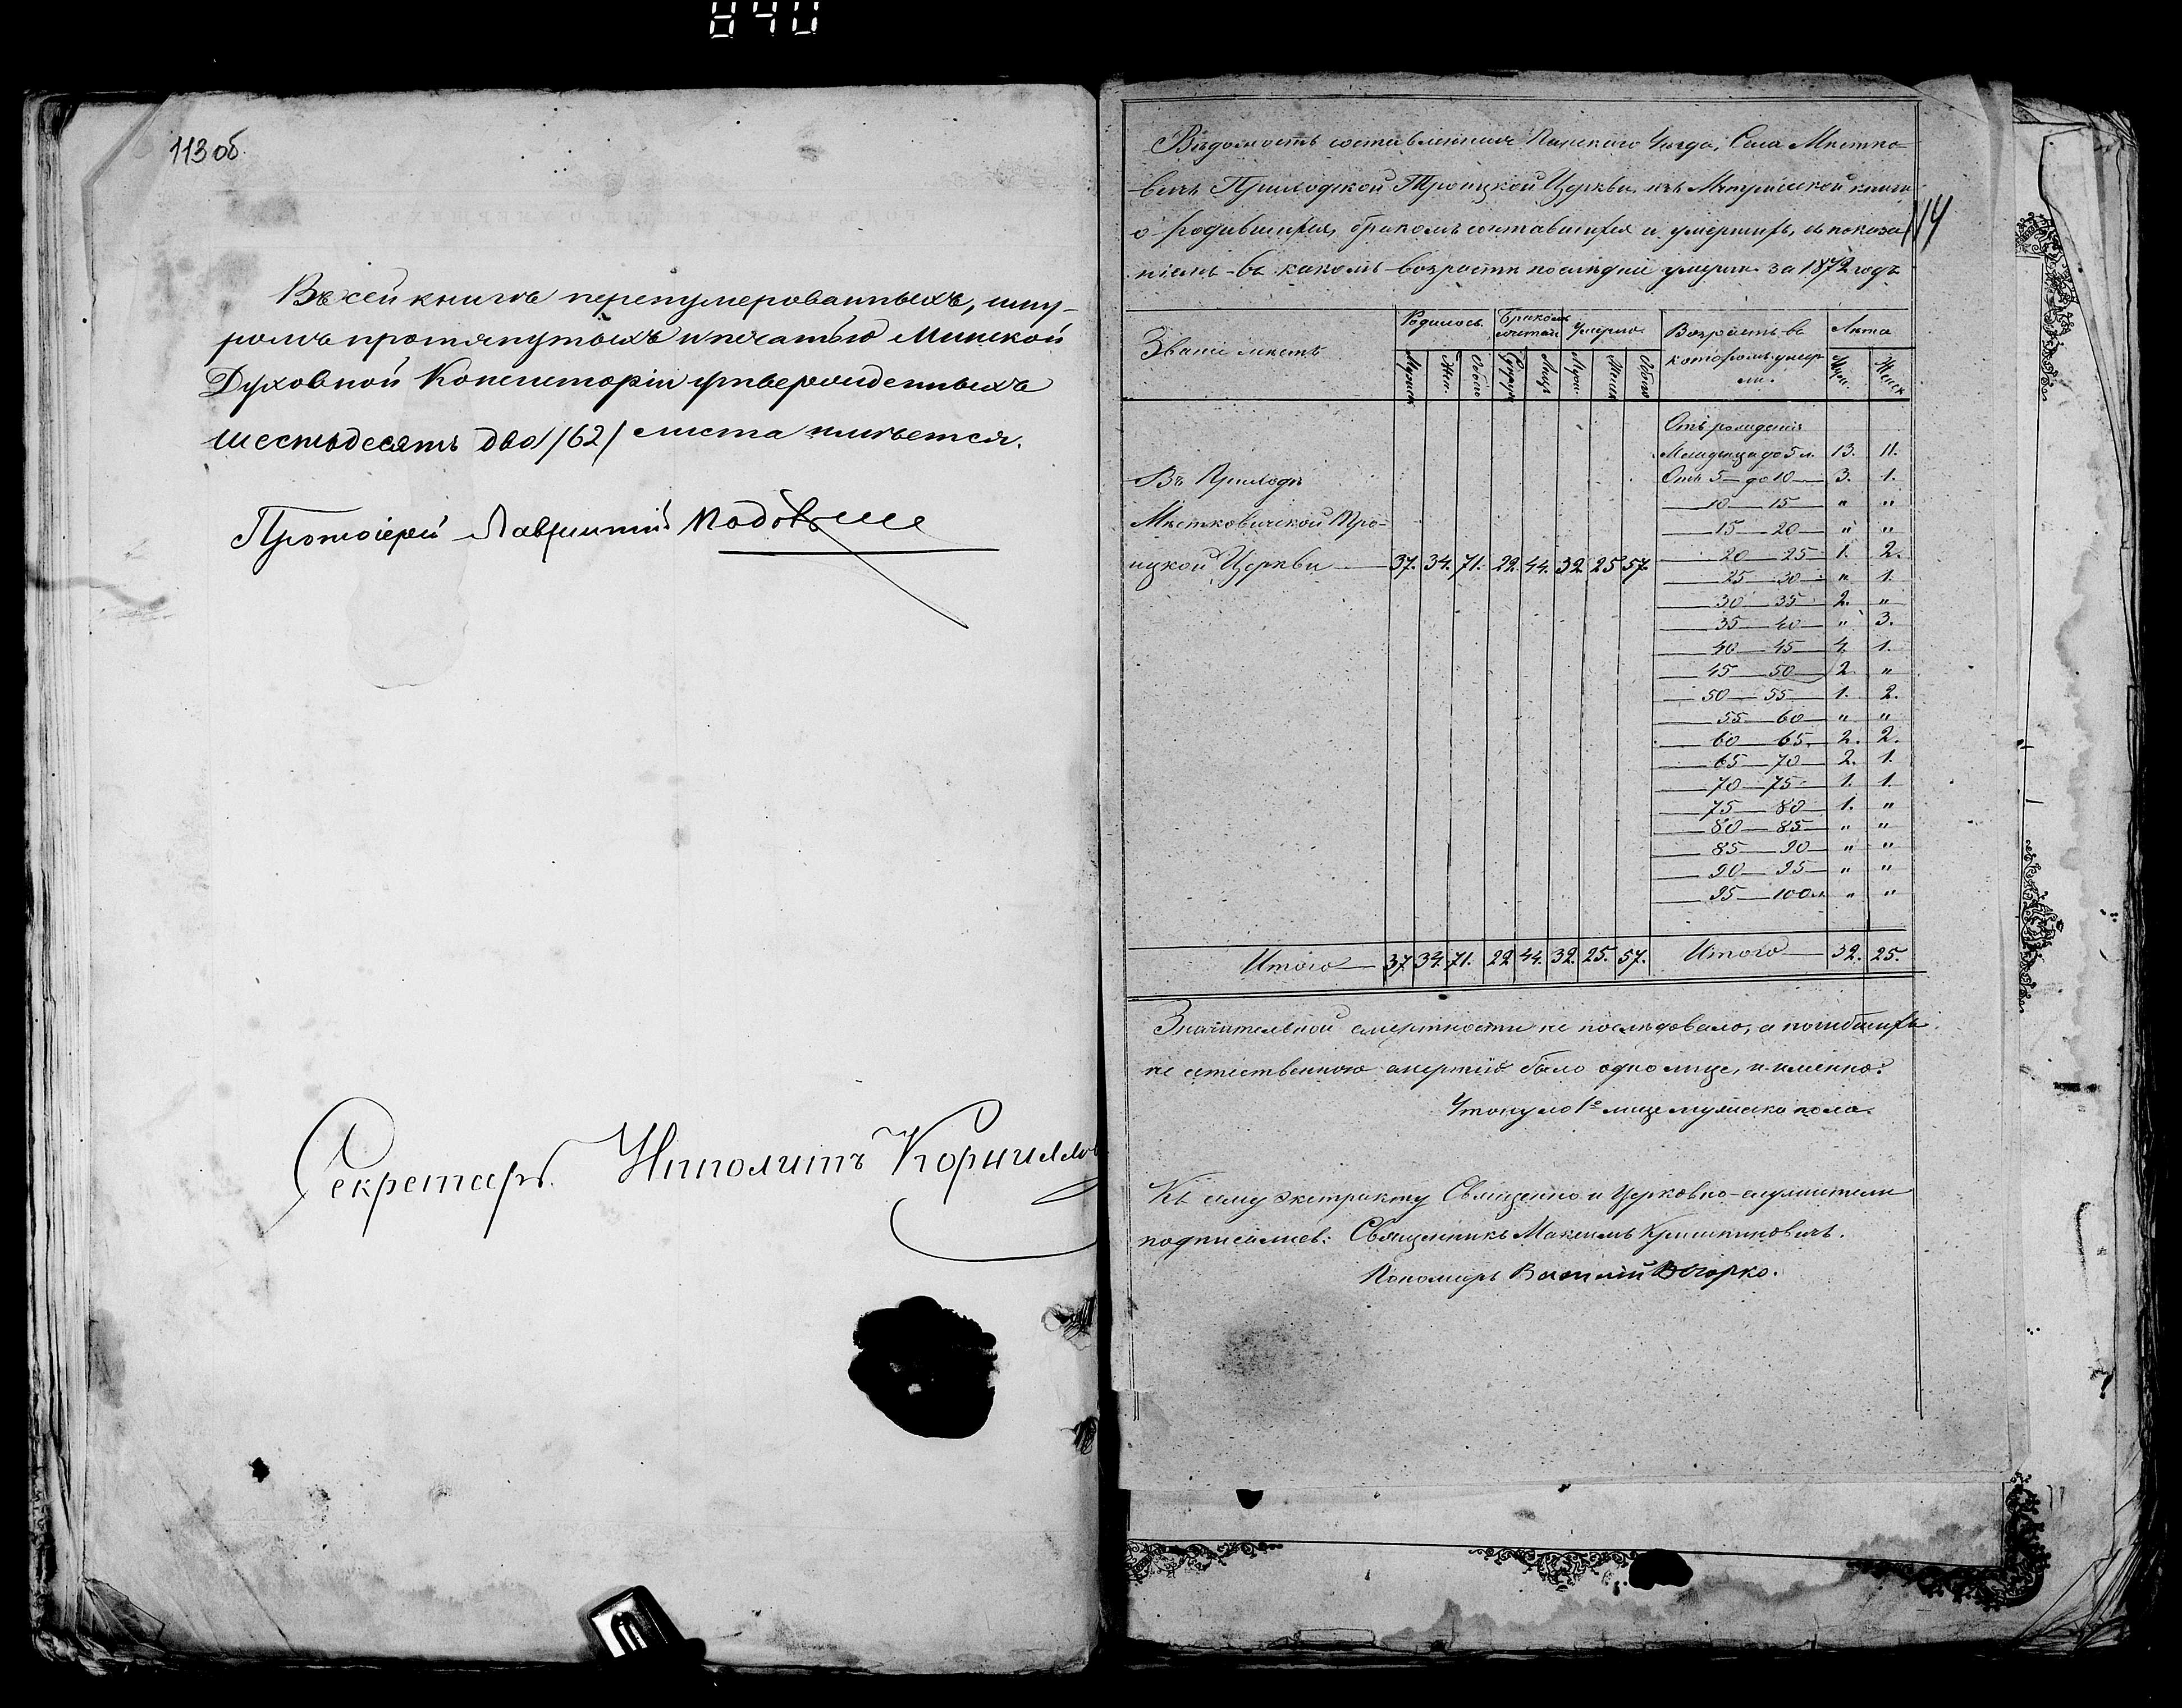 840
113 об.
Въ сей книгѣ перенумерованныхъ, шну-
ромъ протянутыхъ и печатью Минской
Духовной Консисторіи утвержденныхъ
шестьдесятъ два /62/ листа имѣется.
Протоіерей Лаврентій
Секретарь Ипполитъ Корнилло
114
Вѣдомость составленная Пинскаго Уѣзда, Села Мѣстко-
вичъ Приходской Троицкой Церкви, изъ Метрической книги
о родившихся, бракомъ сочетавшихся и умершихъ, съ показа
ніемъ въ какомъ возрастѣ послѣдніе умерли за 1872 годъ
Званіе мѣстъ
Родилось. Бракомъ сочетан. Умерло. Возрастъ въ которомъ умер-ли. Лѣта
Мужск. Жен. Обоего Супруж. Лицъ Муж. Женск. Обоего Муж. Женск.
Отъ рожденія
Младенца до 5 л. 13. 11.
Отъ 5 — до 10 — 3. 1.
10 — 15 — " "
15 — 20 — " "
20 — 25 1. 2.
25 — 30 " 1.
30 — 35 2. "
35 — 40 " 3.
40 — 45 4. 1.
45 — 50 2. "
50 — 55 1. 2.
55 — 60 " "
60 — 65. 2. 2.
65 — 70 2. 1.
70 — 75 1. 1.
75 — 80 1. "
80 — 85 " "
85 — 90 " "
90 — 95 " "
95 — 100 л. " "
Въ Приходѣ
Мѣстковичской Тро-
ицкой Церкви — 37. 34. 71. 22. 44. 32. 25 57.
Итого — 37 34. 71. 22 44. 32. 25. 57. Итого — 32. 25.
Значительной смертности не послѣдовало, а погибшихъ
не естественною смертію было одно лице, и именно:
Утонуло 1º лице мужеска пола.
Къ сему экстракту Священно и Церковно-служители
подписались: Священникъ Максимъ
Пономарь Василій